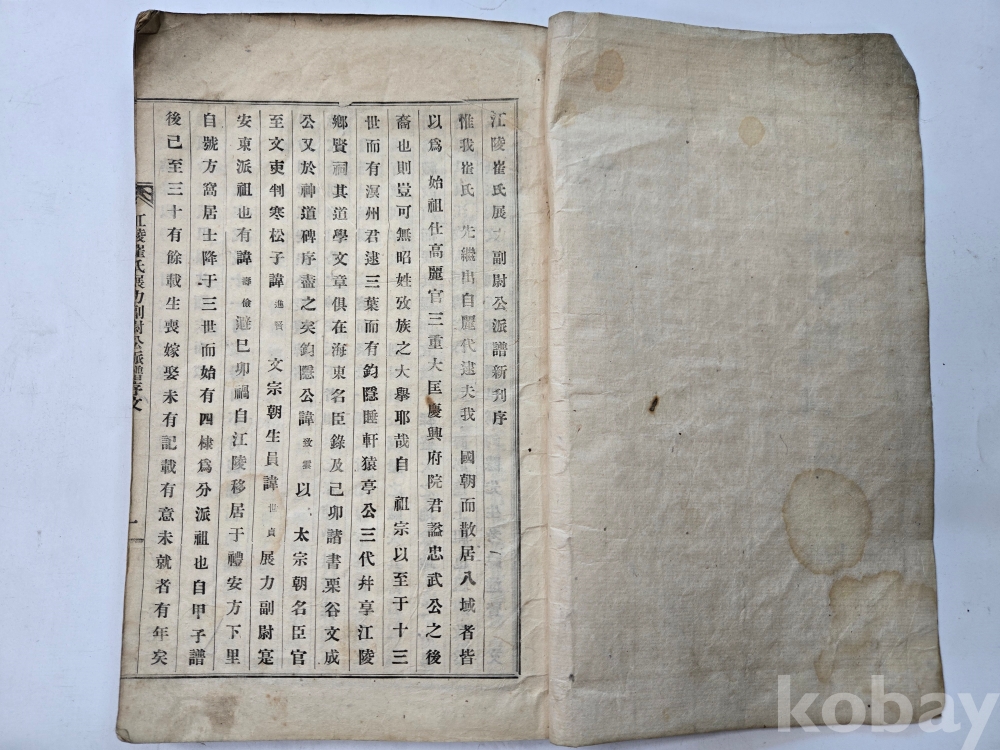 江陵崔氏展力副尉公派譜新刊序
惟我崔氏 先繼出自麗代逮夫我 國朝而散居八域者皆
以爲 始祖仕高麗官三重大匡慶興府院君謚忠武公之後
裔也則豈可無昭姓攷族之大擧耶哉自 祖宗以至于十三
世而有溟州君逮三葉而有鈞隱睡軒猿亭公三代幷享江陵
鄉賢祠其道學文章俱在海東名臣錄及己卯諸書栗谷文成
公又於神道碑序盡之矣鈞隱公諱致雲以 太宗朝名臣官
至文吏判寒松子諱進賢 文宗朝生員諱世貞展力副尉寔
安東派祖也有諱壽儉避巳卯禍自江陵移居于禮安方下里
自號方窩居士降于三世而始有四棣爲分派祖也自甲子譜
後已至三十有餘載生喪嫁娶未有記載有意未就者有年矣
江陵崔氏展力副尉公派譜序文
一
kobay